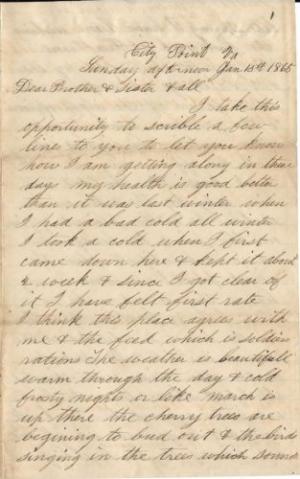 1
City Point Va
Sunday afternoon Jan 15th 1865
Dear Brother & Sister & all
I take this
oppertunity to scribble a few
lines to you to let you know
how I am getting along in these
days my health is good better
than it was last winter when
I had a bad cold all winter
I took a cold when I first
came down here & kept it about
a week & since I got clear of
it I have felt first rate
I think this place agrees with
me & the feed which is soldiers
rations The weather is beautifull
warm through the day & cold
frosty nights or like march is
up there the cherry trees are
begining to bud out & the birds
singing in the trees which sounds